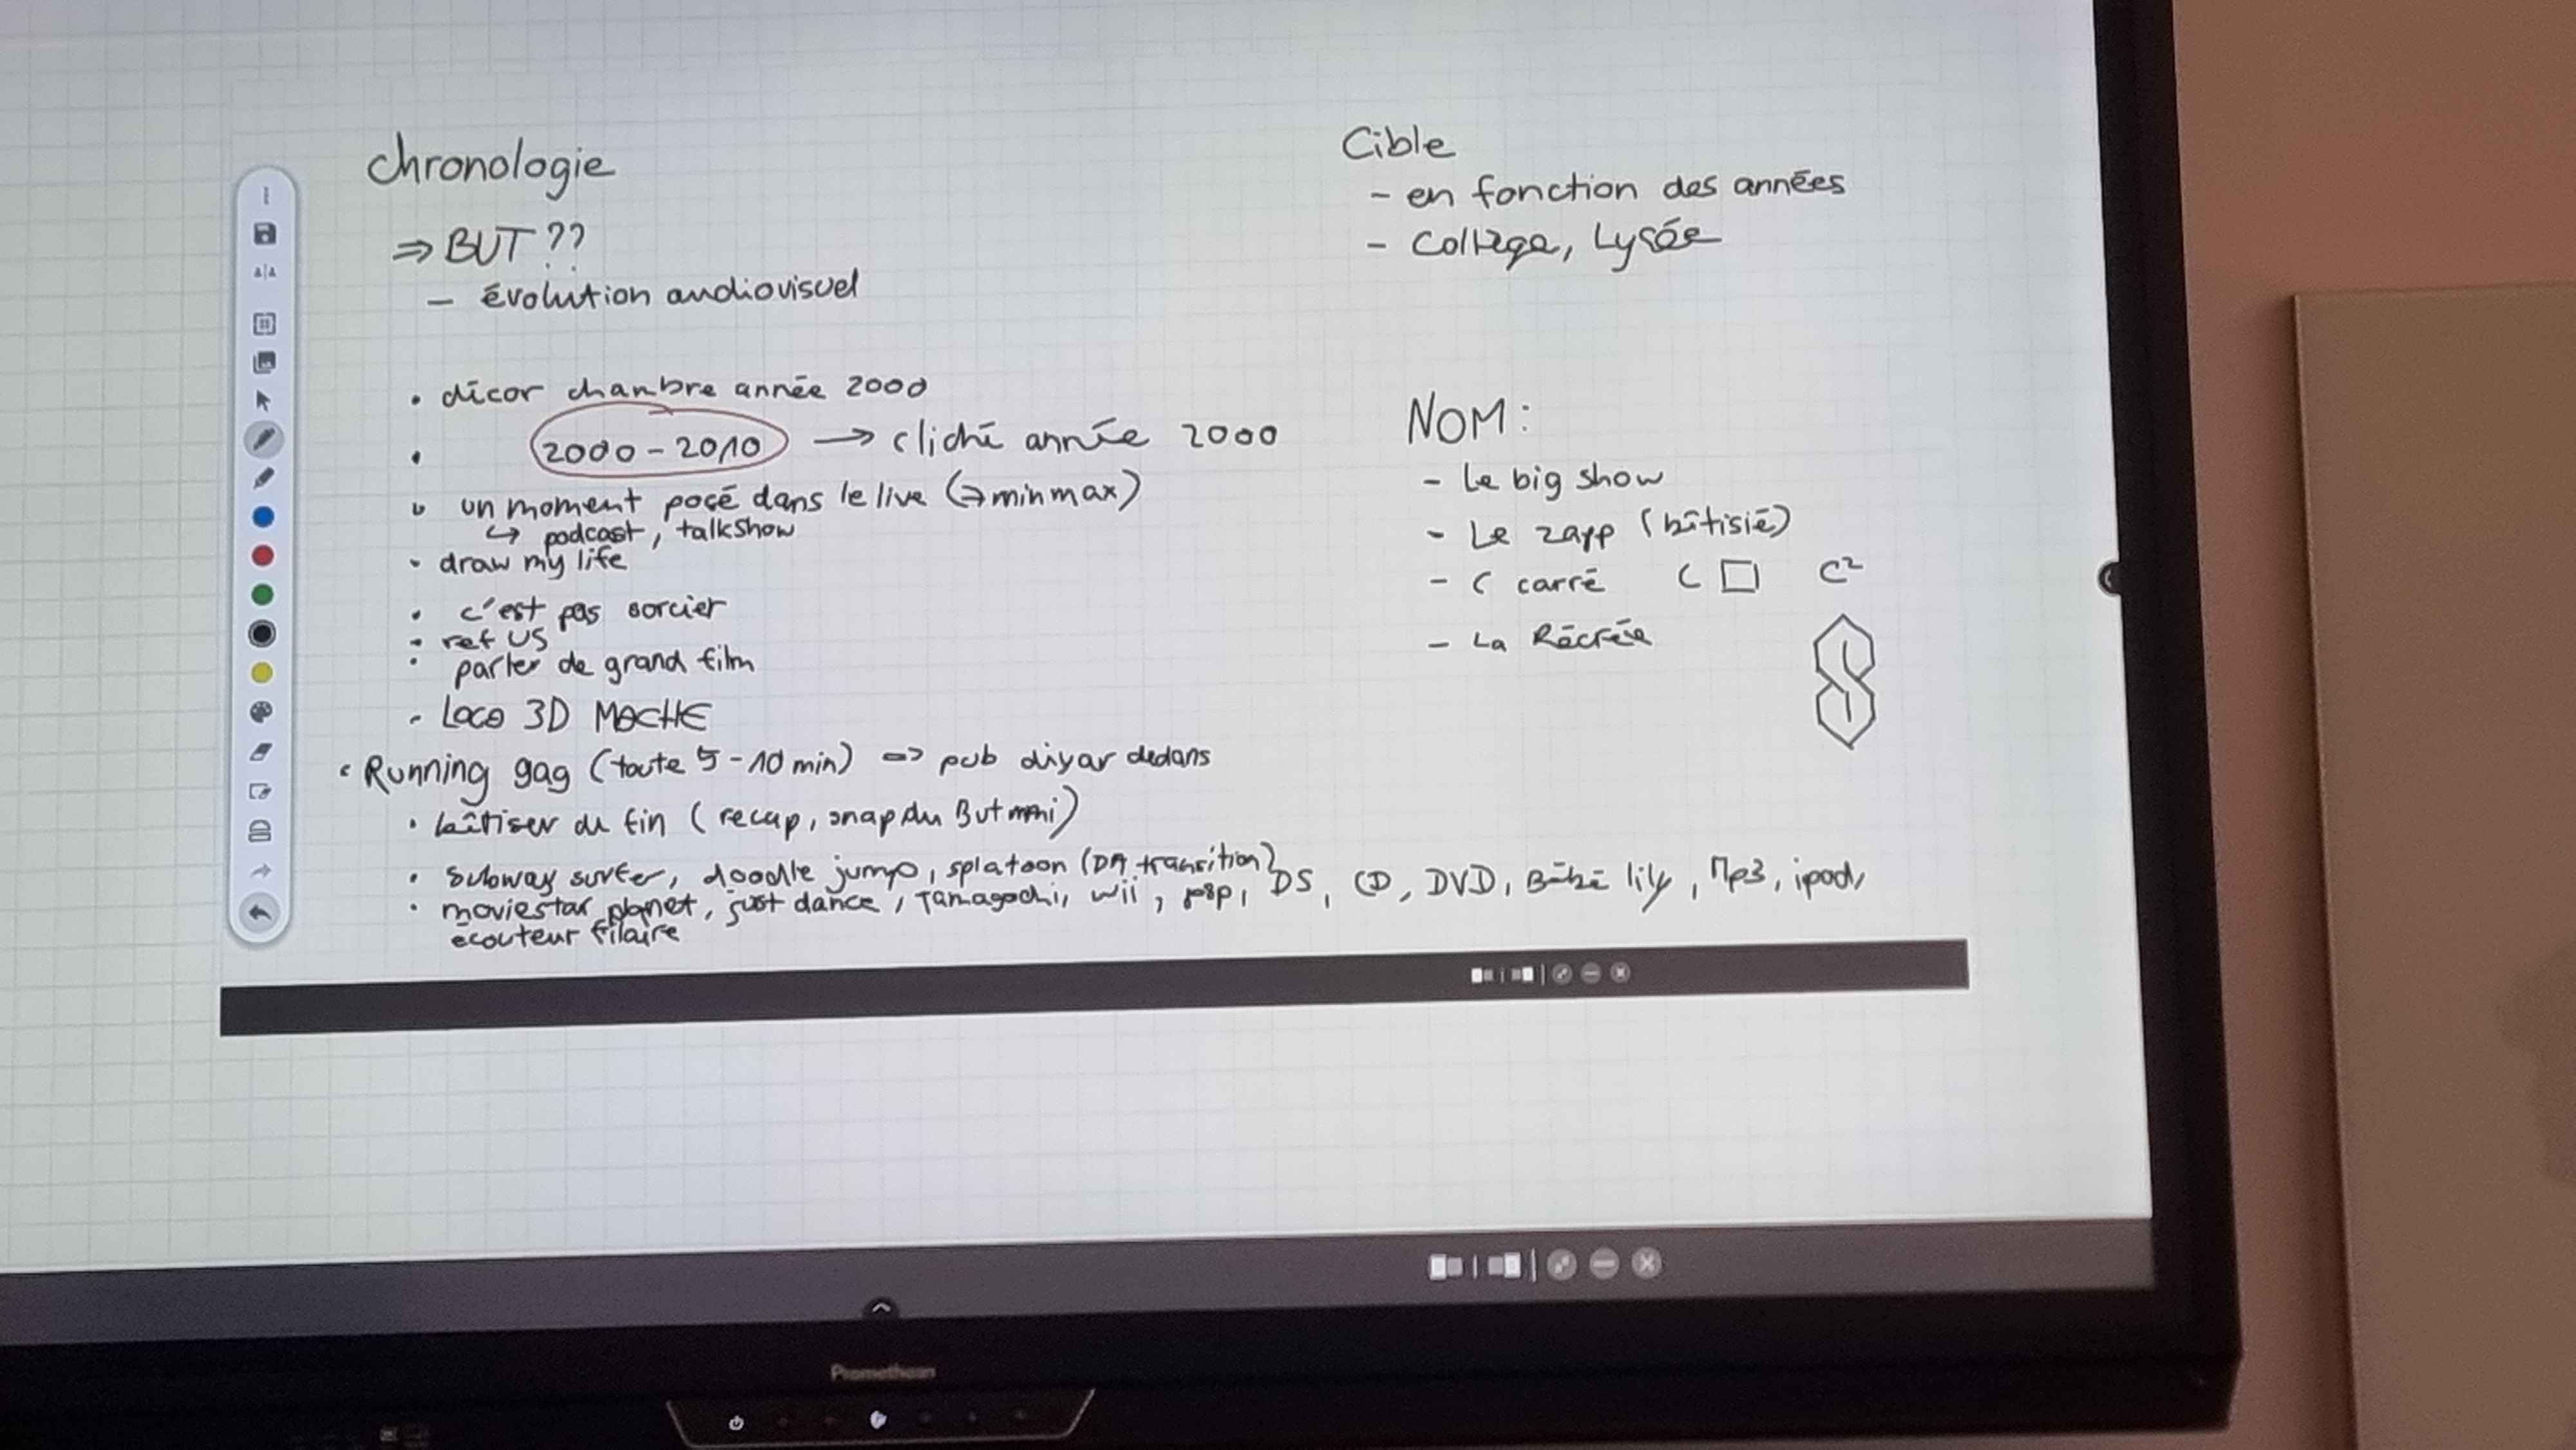 chronologie
⇒ BUT ??
- évolution audiovisuel
• décor chambre année 2000
• 2000 - 2010 → cliché année 2000
• un moment posé dans le live (→ minmax)
↳ podcast, talkshow
• draw my life
• c'est pas sorcier
• ref US
• parler de grand film
• LOGO 3D MOCHE
• Running gag (toute 5 - 10 min) => pub diyar dedans
• bêtiser de fin (recap, snap du But mmi)
• subway surfer, doodle jump, splatoon (DA transition)
• moviestar planet, just dance, Tamagochi, wii, psp, DS, CD, DVD, Bébé lily, Mp3, ipod,
écouteur filaire
Cible
- en fonction des années
- Collège, Lysée
NOM :
- Le big show
- Le zapp (bêtisié)
- C carré C □ C²
- La Récrée
Promethean